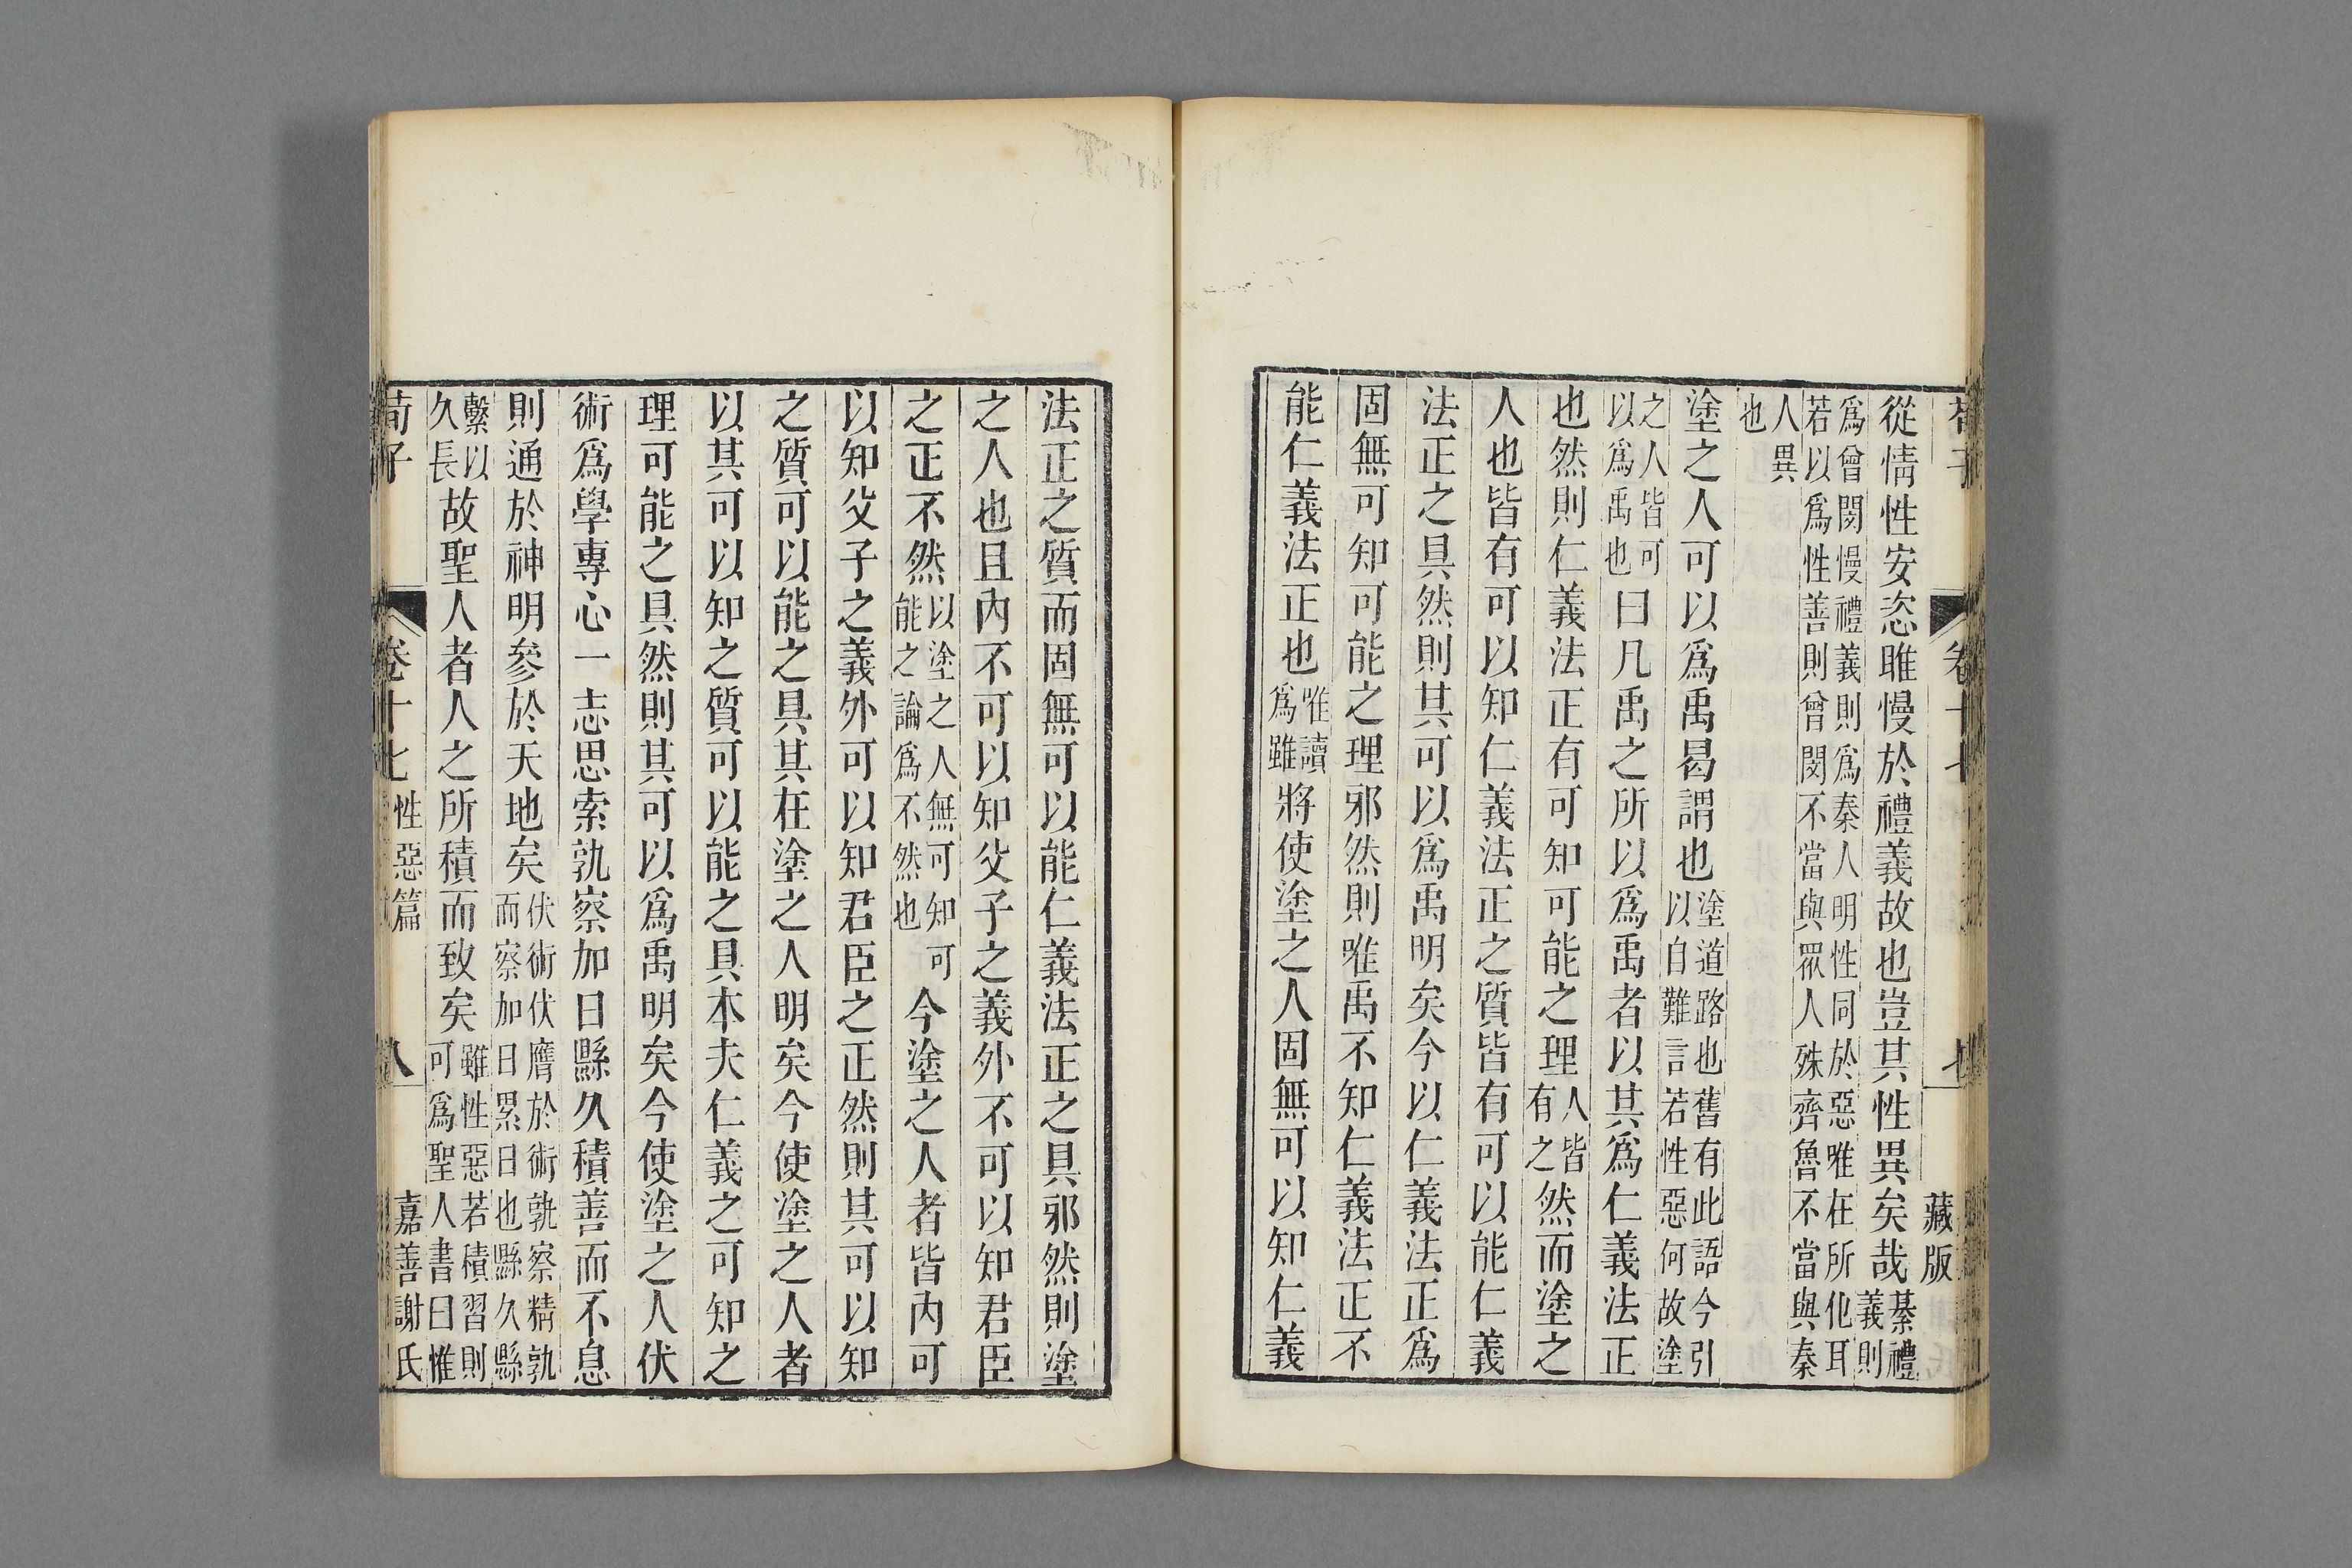 荀子
卷十七
七
藏版
從情性安恣睢慢於禮義故也豈其性異矣哉綦禮義則
爲曾閔慢禮義則爲秦人明性同於惡唯在所化耳
若以爲性善則曾閔不當與眾人殊齊魯不當與秦
人異
也
塗之人可以爲禹曷謂也塗道路也舊有此語今引以自難言若性惡何故塗
之人皆可以爲禹也曰凡禹之所以爲禹者以其爲仁義法正
也然則仁義法正有可知可能之理人皆有之然而塗之
人也皆有可以知仁義法正之質皆有可以能仁義
法正之具然則其可以爲禹明矣今以仁義法正爲
固無可知可能之理邪然則唯禹不知仁義法正不
能仁義法正也唯讀爲雖將使塗之人固無可以知仁義
法正之質而固無可以能仁義法正之具邪然則塗
之人也且內不可以知父子之義外不可以知君臣
之正不然以塗之人無可知可能之論爲不然也今塗之人者皆內可
以知父子之義外可以知君臣之正然則其可以知
之質可以能之具其在塗之人明矣今使塗之人者
以其可以知之質可以能之具本夫仁義之可知之
理可能之具然則其可以爲禹明矣今使塗之人伏
術爲學專心一志思索孰察加日縣久積善而不息
則通於神明參於天地矣伏術伏膺於術孰察精孰而察加日累日也縣久縣
繫以久長故聖人者人之所積而致矣雖性惡若積習則可爲聖人書曰惟
荀子
卷十七
性惡篇
八
嘉善謝氏